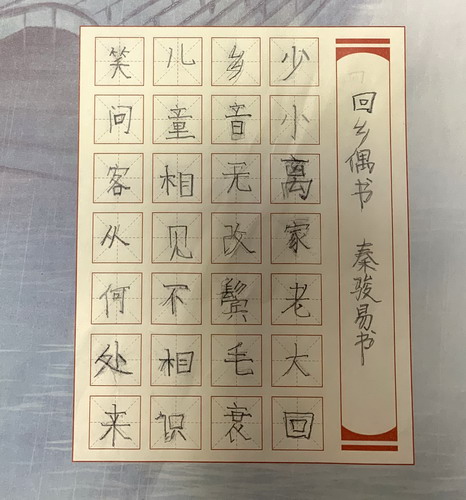 回乡偶书 秦骏易书
少小离家老大回
乡音无改鬓毛衰
儿童相见不相识
笑问客从何处来